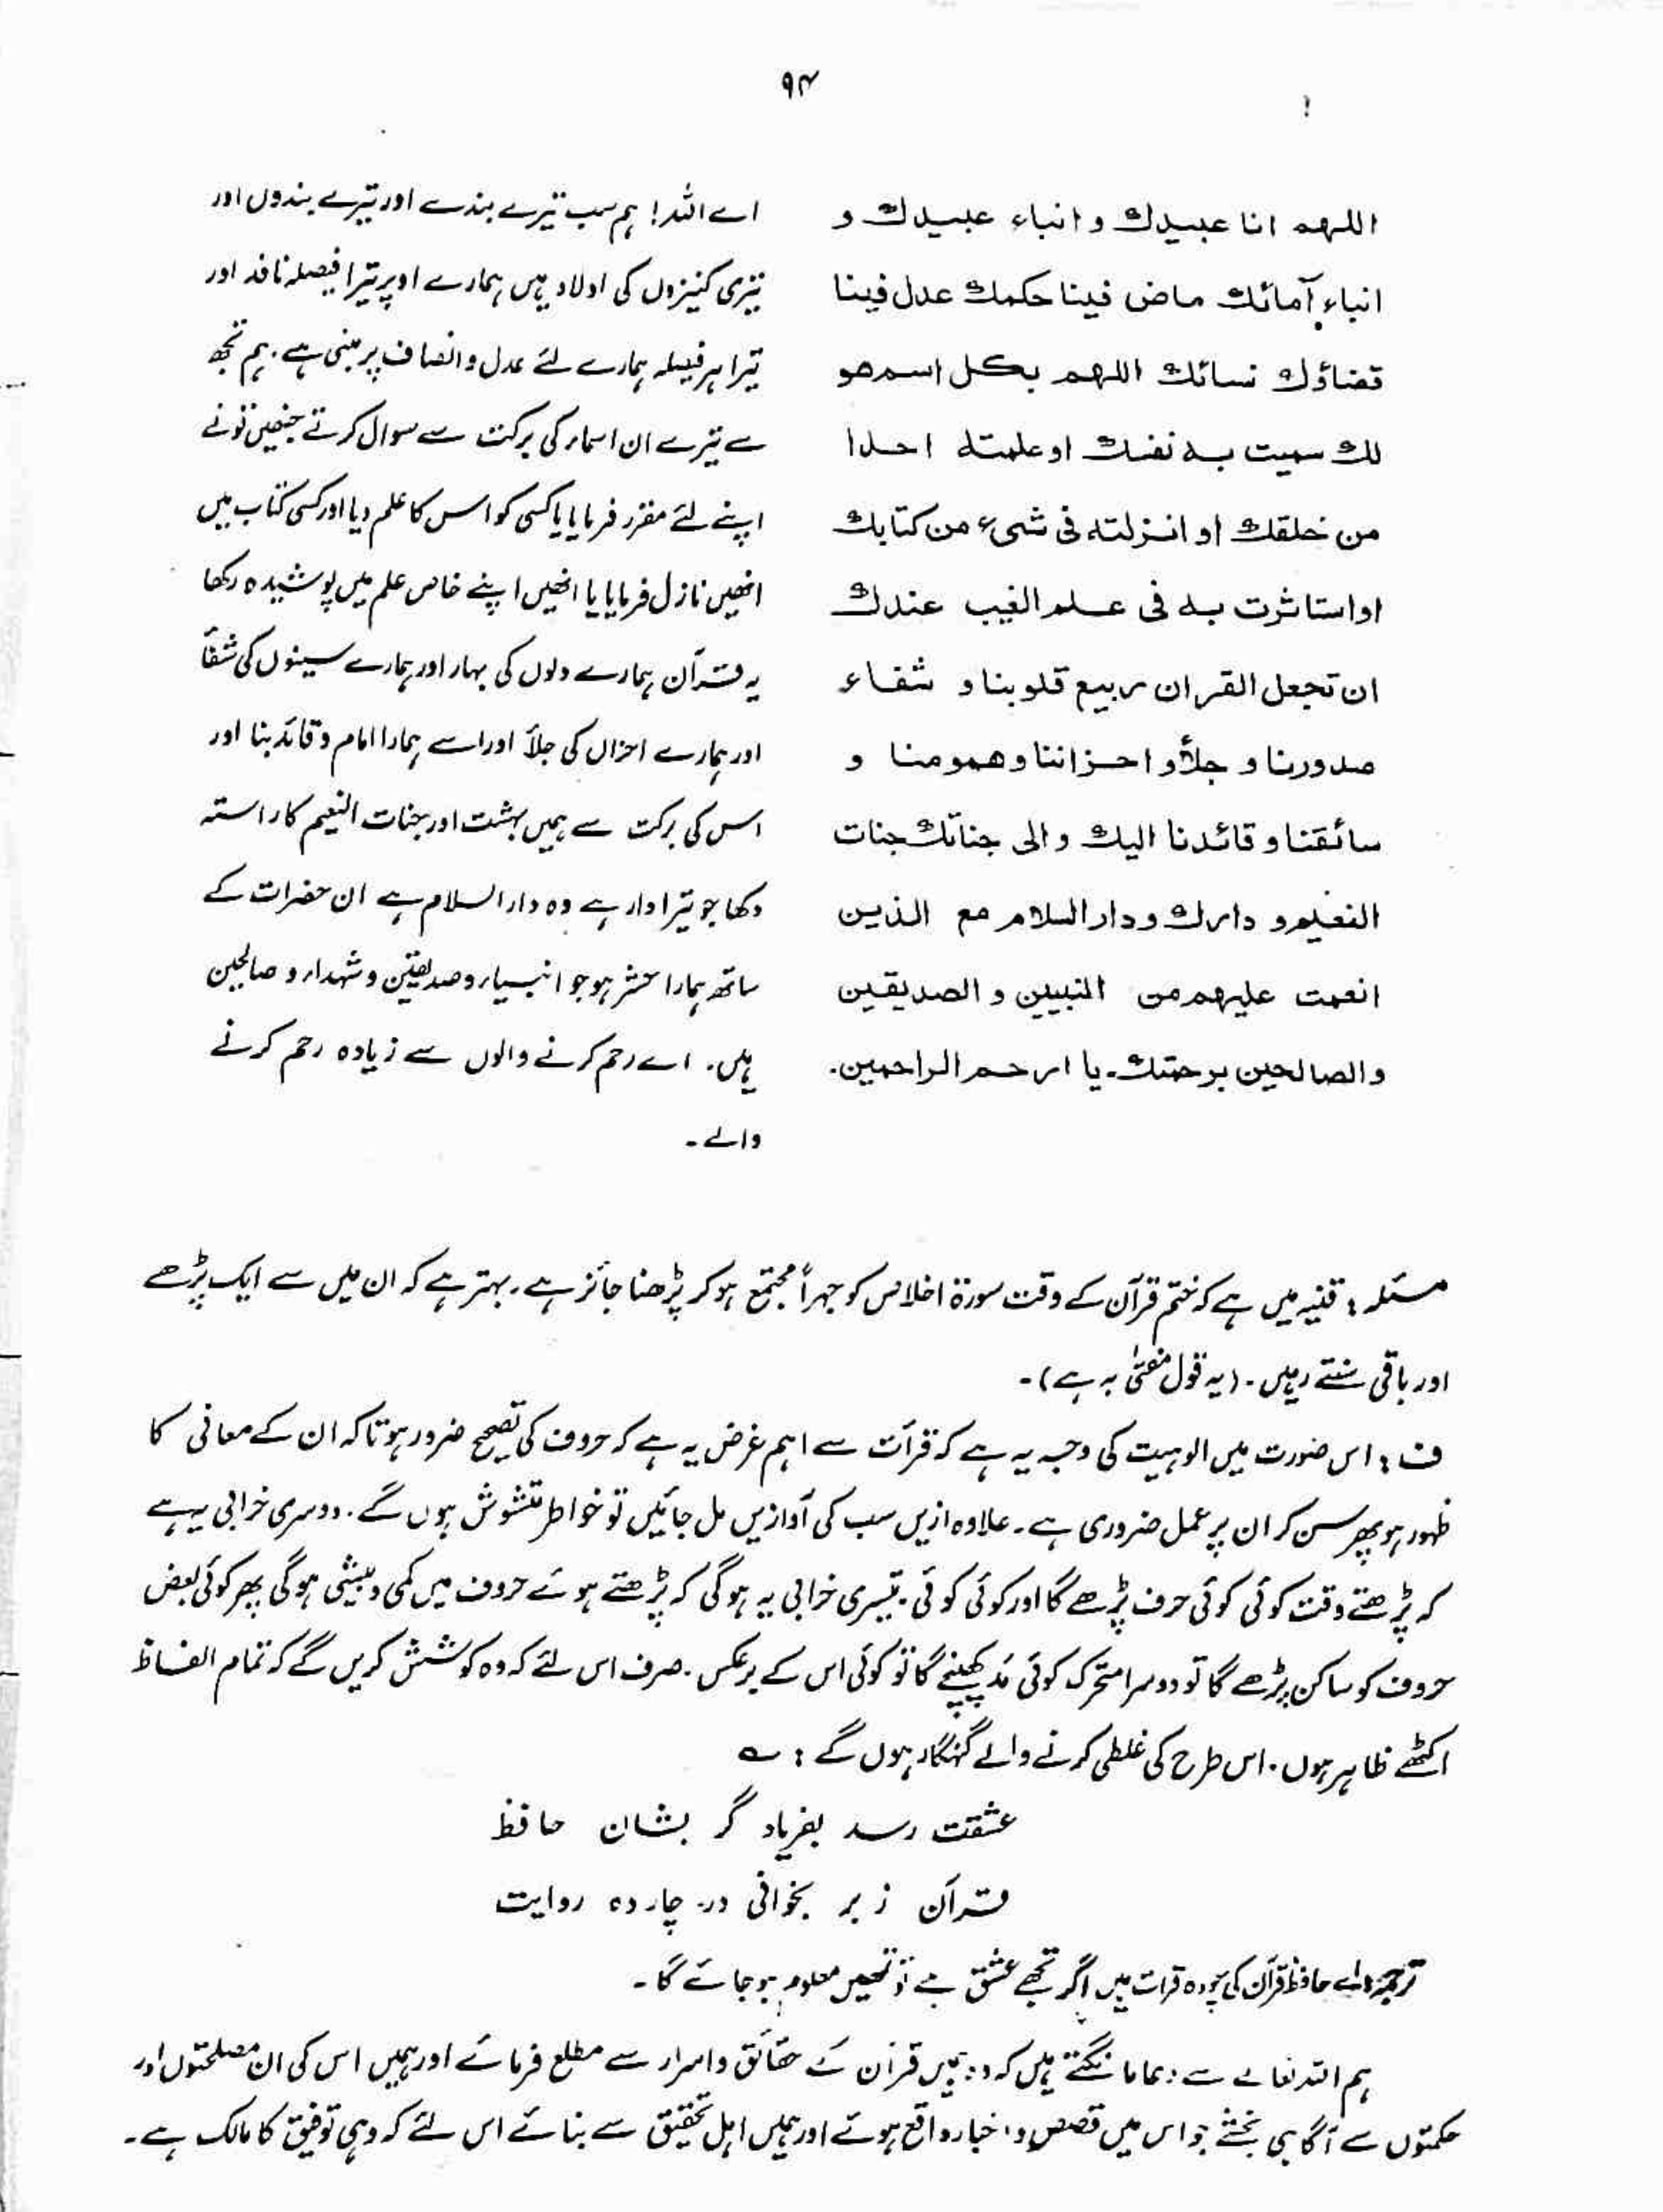 ۹۴
اللهم انا عبيدك و انباء عبيدك و
انباء آمائك ماض فينا حكمك عدل فينا
قضاؤك نسائك اللهم بكل اسم هو
لك سميت به نفسك او علمته احدا
من خلقك او انزلته فى شىء من كتابك
او استاثرت به فى علم الغيب عندك
ان تجعل القران ربيع قلوبنا و شفاء
صدورنا و جلأو احزاننا و همومنا و
سائقنا و قائدنا اليك والى جناتك جنات
النعيم و دارك و دار السلام مع الذين
انعمت عليهم من النبيين و الصديقين
و الصالحين برحمتك۔ يا ارحم الراحمين۔
اے اللہ! ہم سب تیرے بندے اور تیرے بندوں اور
تیری کنیزوں کی اولاد ہیں ہمارے اوپر تیرا فیصلہ نافذ اور
تیرا ہر فیصلہ ہمارے لئے عدل و انصاف پر مبنی ہے۔ ہم تجھ
سے تیرے ان اسماء کی برکت سے سوال کرتے جنھیں تونے
اپنے لئے مقرر فرمایا یا کسی کو اس کا علم دیا اور کسی کتاب میں
انھیں نازل فرمایا یا انھیں اپنے خاص علم میں پوشیدہ رکھا
یہ قرآن ہمارے دلوں کی بہار اور ہمارے سینوں کی شفأ
اور ہمارے احزان کی جلأ اور اسے ہمارا امام و قائد بنا اور
اس کی برکت سے ہمیں بہشت اور جنات النعیم کا راستہ
دکھا جو تیرا دار ہے وہ دار السلام ہے ان حضرات کے
ساتھ ہمارا حشر ہو جو انبیاء و صدیقین و شہداء و صالحین
ہیں۔ اے رحم کرنے والوں سے زیادہ رحم کرنے
والے۔
مسئلہ : قنیہ میں ہے کہ ختم قرآن کے وقت سورۃ اخلاص کو جہراً مجتمع ہو کر پڑھنا جائز ہے۔ بہتر ہے کہ ان میں سے ایک پڑھے
اور باقی سنتے رہیں۔ (یہ قول مفتیٰ بہ ہے)۔
ف : اس صورت میں الوہیت کی وجہ یہ ہے کہ قرآت سے اہم غرض یہ ہے کہ حروف کی تصحیح ضرور ہو تاکہ ان کے معانی کا
ظہور ہو پھر سن کر ان پر عمل ضروری ہے۔ علاوہ ازیں سب کی آوازیں مل جائیں تو خواطر متشوش ہوں گے۔ دوسری خرابی یہ ہے
کہ پڑھتے وقت کوئی کوئی حرف پڑھے گا اور کوئی کوئی۔ تیسری خرابی یہ ہوگی کہ پڑھتے ہوئے حروف میں کمی و بیشی ہوگی پھر کوئی بعض
حروف کو ساکن پڑھے گا تو دوسرا متحرک کوئی مد کھینچے گا تو کوئی اس کے برعکس۔ صرف اس لئے کہ وہ کوشش کریں گے کہ تمام الفاظ
اکٹھے ظاہر ہوں۔ اس طرح کی غلطی کرنے والے گنہگار ہوں گے : ؎
عشقت رسد بفریاد گر بشان حافظ
قرآن ز بر بخوانی در چار دہ روایت
ترجمہ : اے حافظ قرآن کی چودہ قرات میں اگر تجھے عشق ہے تو تمھیں معلوم ہو جائے گا۔
ہم اللہ تعالے سے دعا مانگتے ہیں کہ وہ ہمیں قرآن کے حقائق و اسرار سے مطلع فرمائے اور ہمیں اس کی ان مصلحتوں اور
حکمتوں سے آگاہی بخشے جو اس میں قصص و اخبار واقع ہوئے اور ہمیں اہل تحقیق سے بنائے اس لئے کہ وہی توفیق کا مالک ہے۔